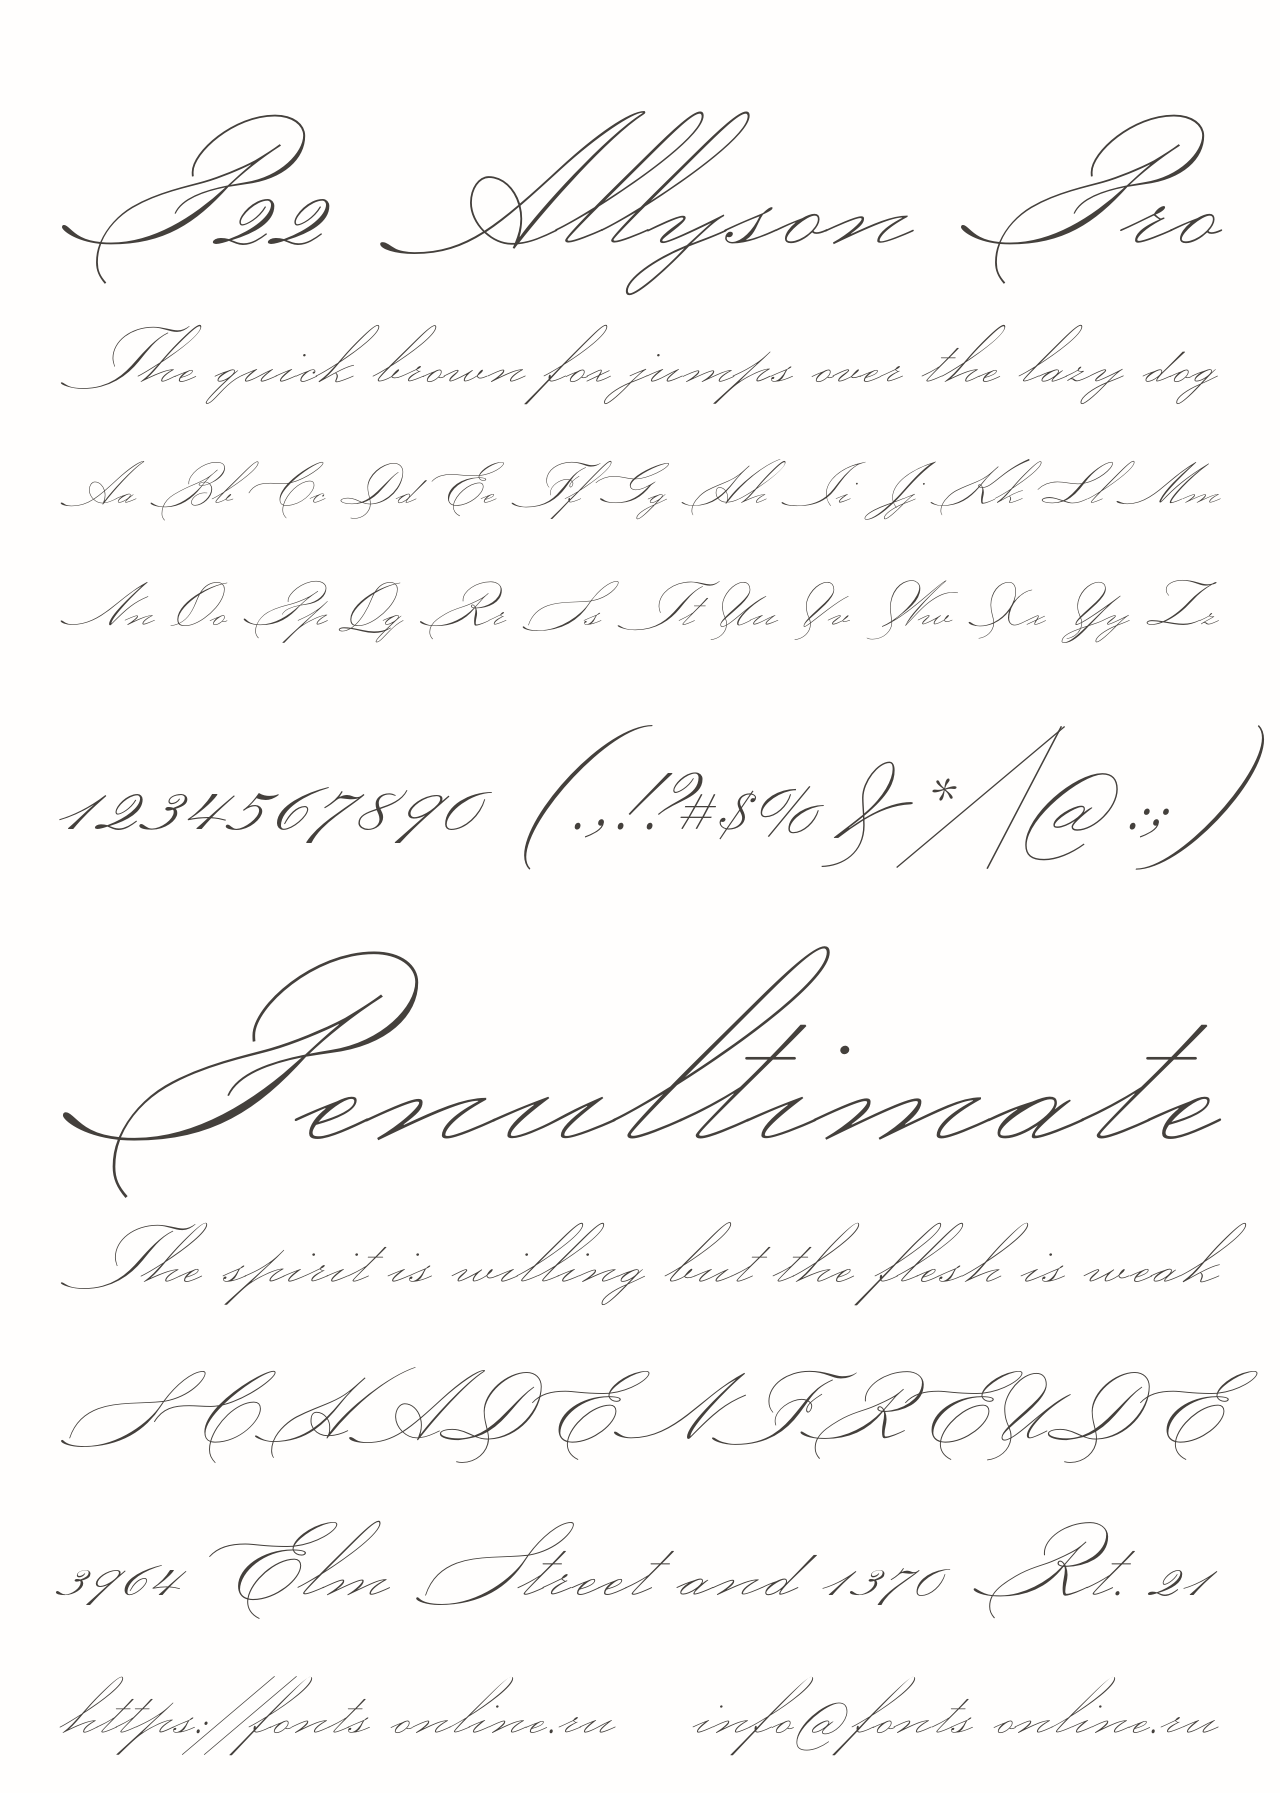 P22 Allyson Pro
The quick brown fox jumps over the lazy dog
Aa Bb Cc Dd Ee Ff Gg Hh Ii Jj Kk Ll Mm
Nn Oo Pp Qq Rr Ss Tt Uu Vv Ww Xx Yy Zz
1234567890 (.,!?#$%&*/\@:;)
Penultimate
The spirit is willing but the flesh is weak
SCHADENFREUDE
3964 Elm Street and 1370 Rt. 21
https://fonts online.ru info@fonts online.ru